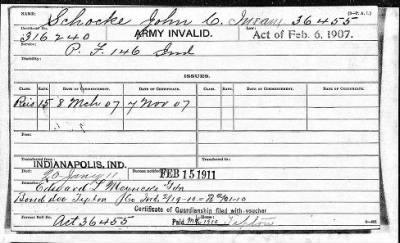 Name: Schocke John C. Insane 36455
Certificate No.
316240 ARMY INVALID. Act of Feb. 6, 1907.
Service:
P. F. 146 Ind
Disability:
ISSUES.
CLASS. RATE. DATE OF COMMENCEMENT. DATE OF CERTIFICATE. CLASS. RATE. DATE OF COMMENCEMENT. DATE OF CERTIFICATE.
Reis 15 8 Mch 07 7 Nov 07
Died:
Transferred to
INDIANAPOLIS, IND.
Transferred from
FEB 15 1911
Edward L Gdn
Tipton Co Ind.
Certificate of Guardianship filed with voucher
Former Roll No. Act 36455 Paid 1910 Tipton